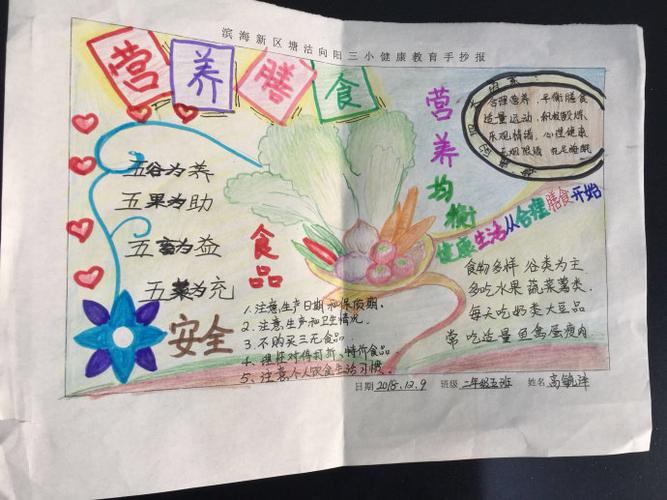 滨海新区塘沽向阳三小健康教育手抄报
营养膳食
五谷为养
五果为助
五畜为益
五菜为充
营养均衡
合理营养，平衡膳食
适量运动，积极锻炼
乐观情绪，心理健康
健康生活从合理膳食开始
食物多样 谷类为主
多吃水果 蔬菜薯类
每天吃奶类大豆品
常吃适量鱼禽蛋瘦肉
食品
安全
1、注意生产日期和保质期。
2、注意生产和卫生情况。
3、不购买三无食品。
4、理性对待打折、特价食品
5、注意个人饮食生活习惯.
日期 2018.12.9 班级 二年级五班 姓名